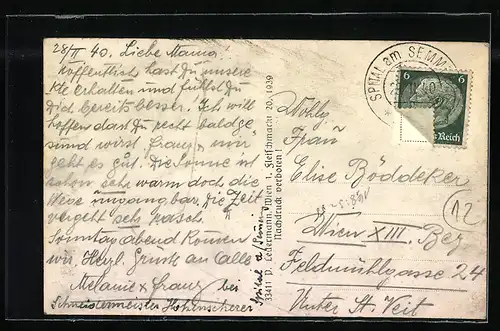 28/II 40. Liebe Mama!
Hoffentlich hast du unsere
Kte erhalten und fühlst du
Dich bereits besser. Ich will
hoffen dass du recht bald ge-
sund wirst. Franz u mir
geht es gut. Die Sonne ist
schon sehr warm doch die
Wege ungangbar. Die Zeit
vergeht sehr rasch.
Sonntag Abend kommen
wir. Herzl. Gruss an Alle
Melanie & Franz bei
Schneidermeister Hohenscherer
Spital a/Semering
33411 P. Ledermann, Wien I, Fleischmarkt 20, 1939
Nachdruck verboten!
SPITAL am SEMM
6
6
Reich
Wohlg
Frau
Elise Böddeker
Wien XIII. Bez
Feldmühlgasse 24
Unter St. Veit
12